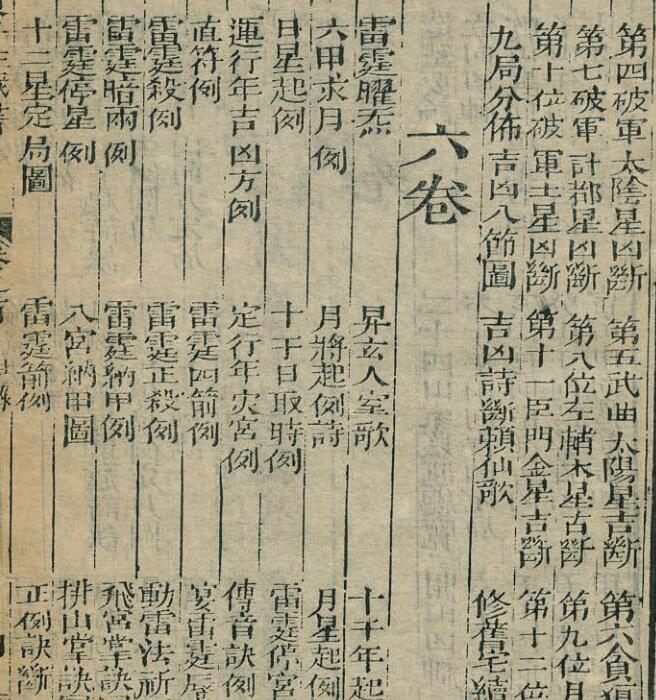 第四破軍太陰星凶斷 第五武曲太陽星吉斷 第六貪狼
第七破軍計都星凶斷 第八位左輔木星吉斷 第九位
第十位破軍土星凶斷 第十一臣門金星吉斷 第十二位
九局分佈吉凶八節圖 吉凶詩斷賴仙歌 修舊宅
六卷
雷霆曜炁 昇玄人室歌 十干年起
六甲求月例 月將起例詩 月星起例
日星起例 十干日取時例 雷霆停宮
運行年吉凶方例 定行年灾宮例 傳音訣例
直符例 雷霆四箭例 雷霆
雷霆殺例 雷霆正殺例 動雷法祈
雷霆暗兩例 雷霆納甲例 飛宮掌訣
雷霆停星例 八宮納甲圖 排山掌訣
十二星定局圖 雷霆箭例 正例訣斷